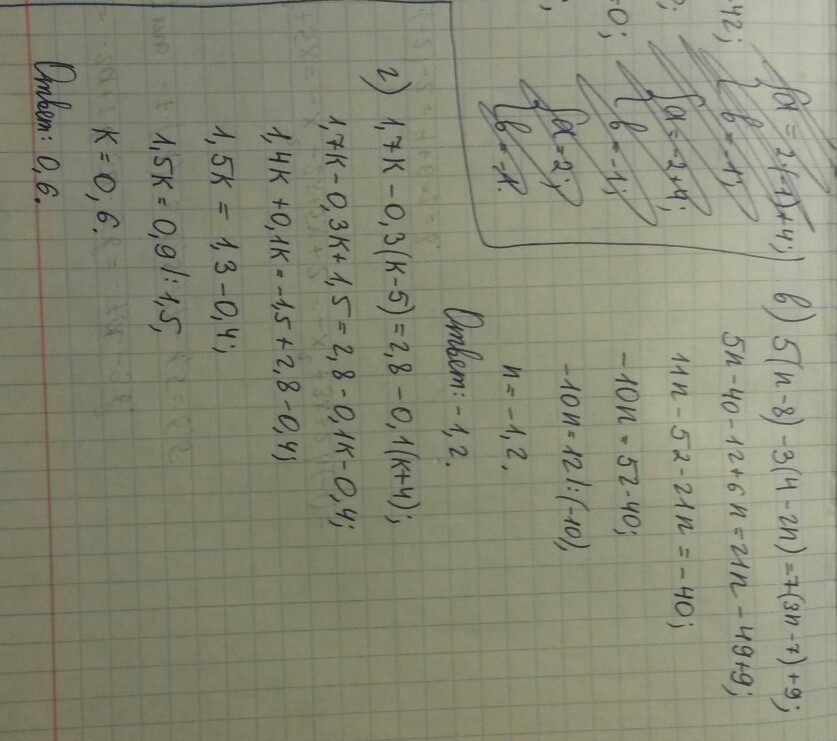 -42;
=0;
{a = 2·(-1)+4;
{b = -1;
{a = -2+4;
{b = -1;
{a = 2;
{b = -1.
в) 5(n-8)-3(4-2n)=7(3n-7)+9;
5n-40-12+6n=21n-49+9;
11n-52-21n=-40;
-10n=52-40;
-10n=12|:(-10);
n=-1,2.
Ответ: -1,2.
г) 1,7к-0,3(к-5)=2,8-0,1(к+4);
1,7к-0,3к+1,5=2,8-0,1к-0,4;
1,4к+0,1к=-1,5+2,8-0,4;
1,5к=1,3-0,4;
1,5к=0,9|:1,5;
к=0,6.
Ответ: 0,6.